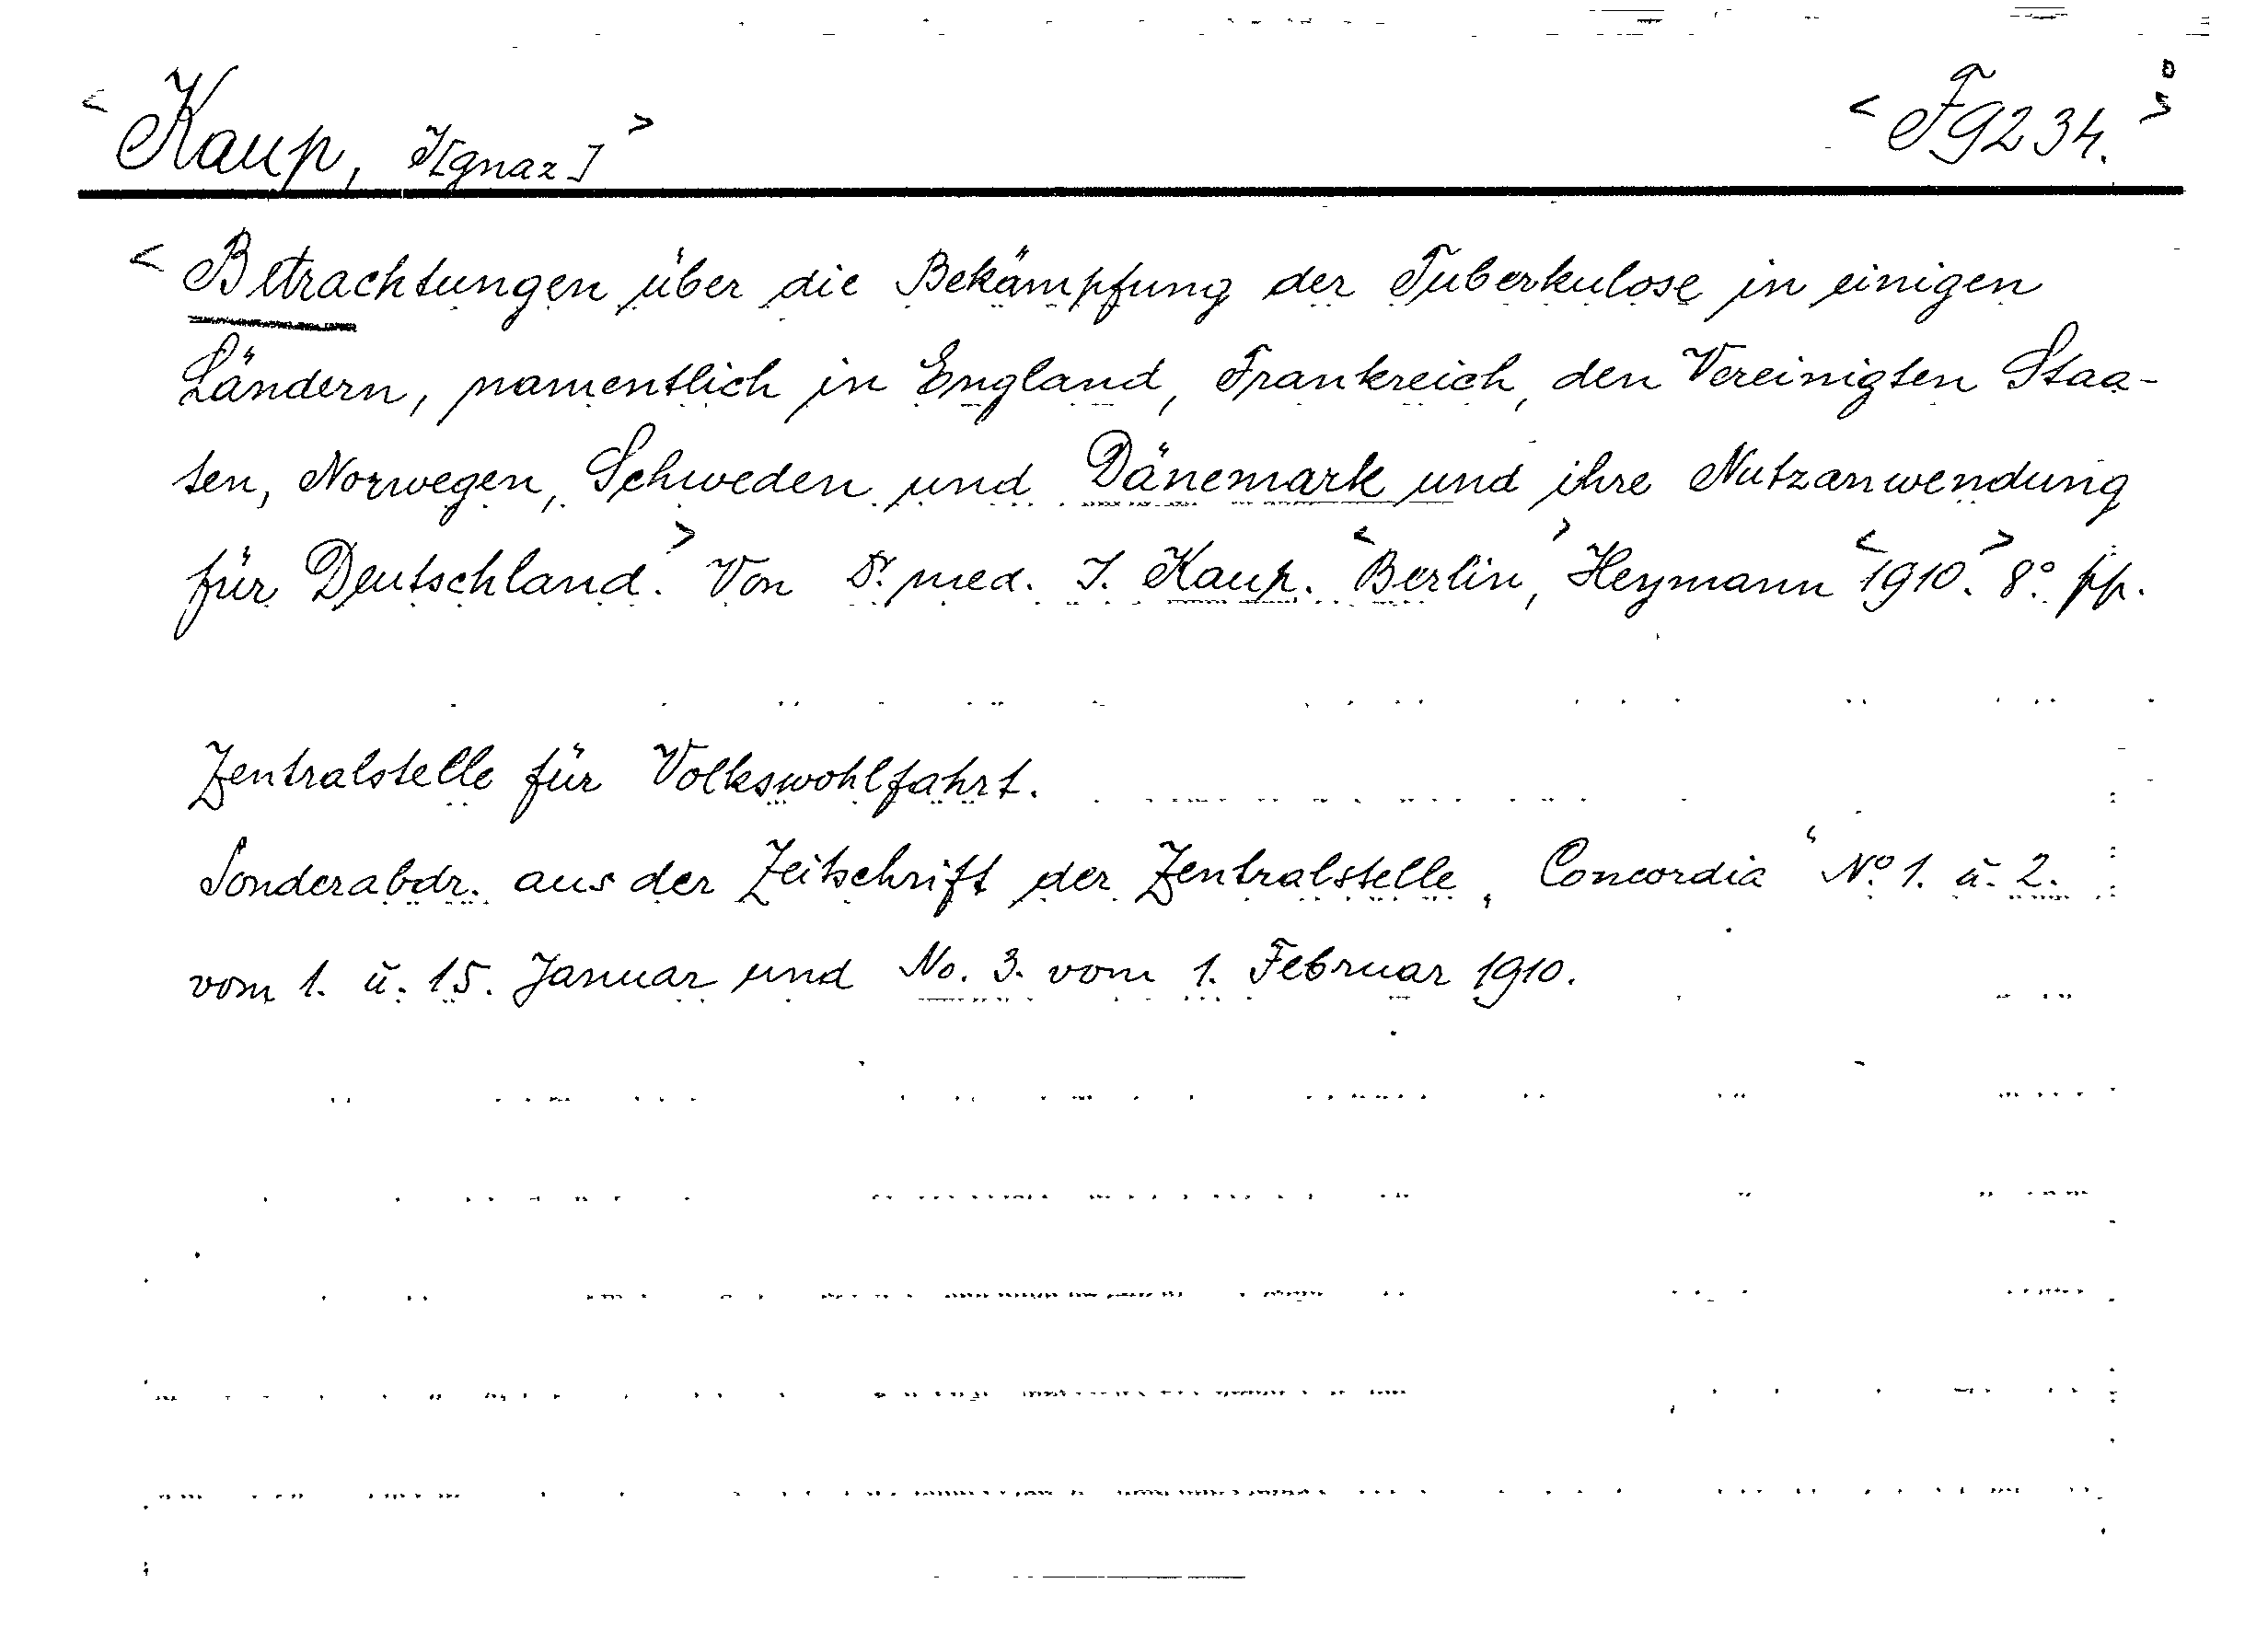 < Kaup, I[gnaz] > < F9234. >
< Betrachtungen über die Bekämpfung der Tuberkulose in einigen
Ländern, namentlich in England, Frankreich, den Vereinigten Staa-
ten, Norwegen, Schweden und Dänemark und ihre Nutzanwendung
für Deutschland. > Von Dr. med. I. Kaup. < Berlin, > Heymann < 1910. > 8° pp.
Zentralstelle für Volkswohlfahrt.
Sonderabdr. aus der Zeitschrift der Zentralstelle „Concordia“ No 1. u. 2.
vom 1. u. 15. Januar und No. 3. vom 1. Februar 1910.